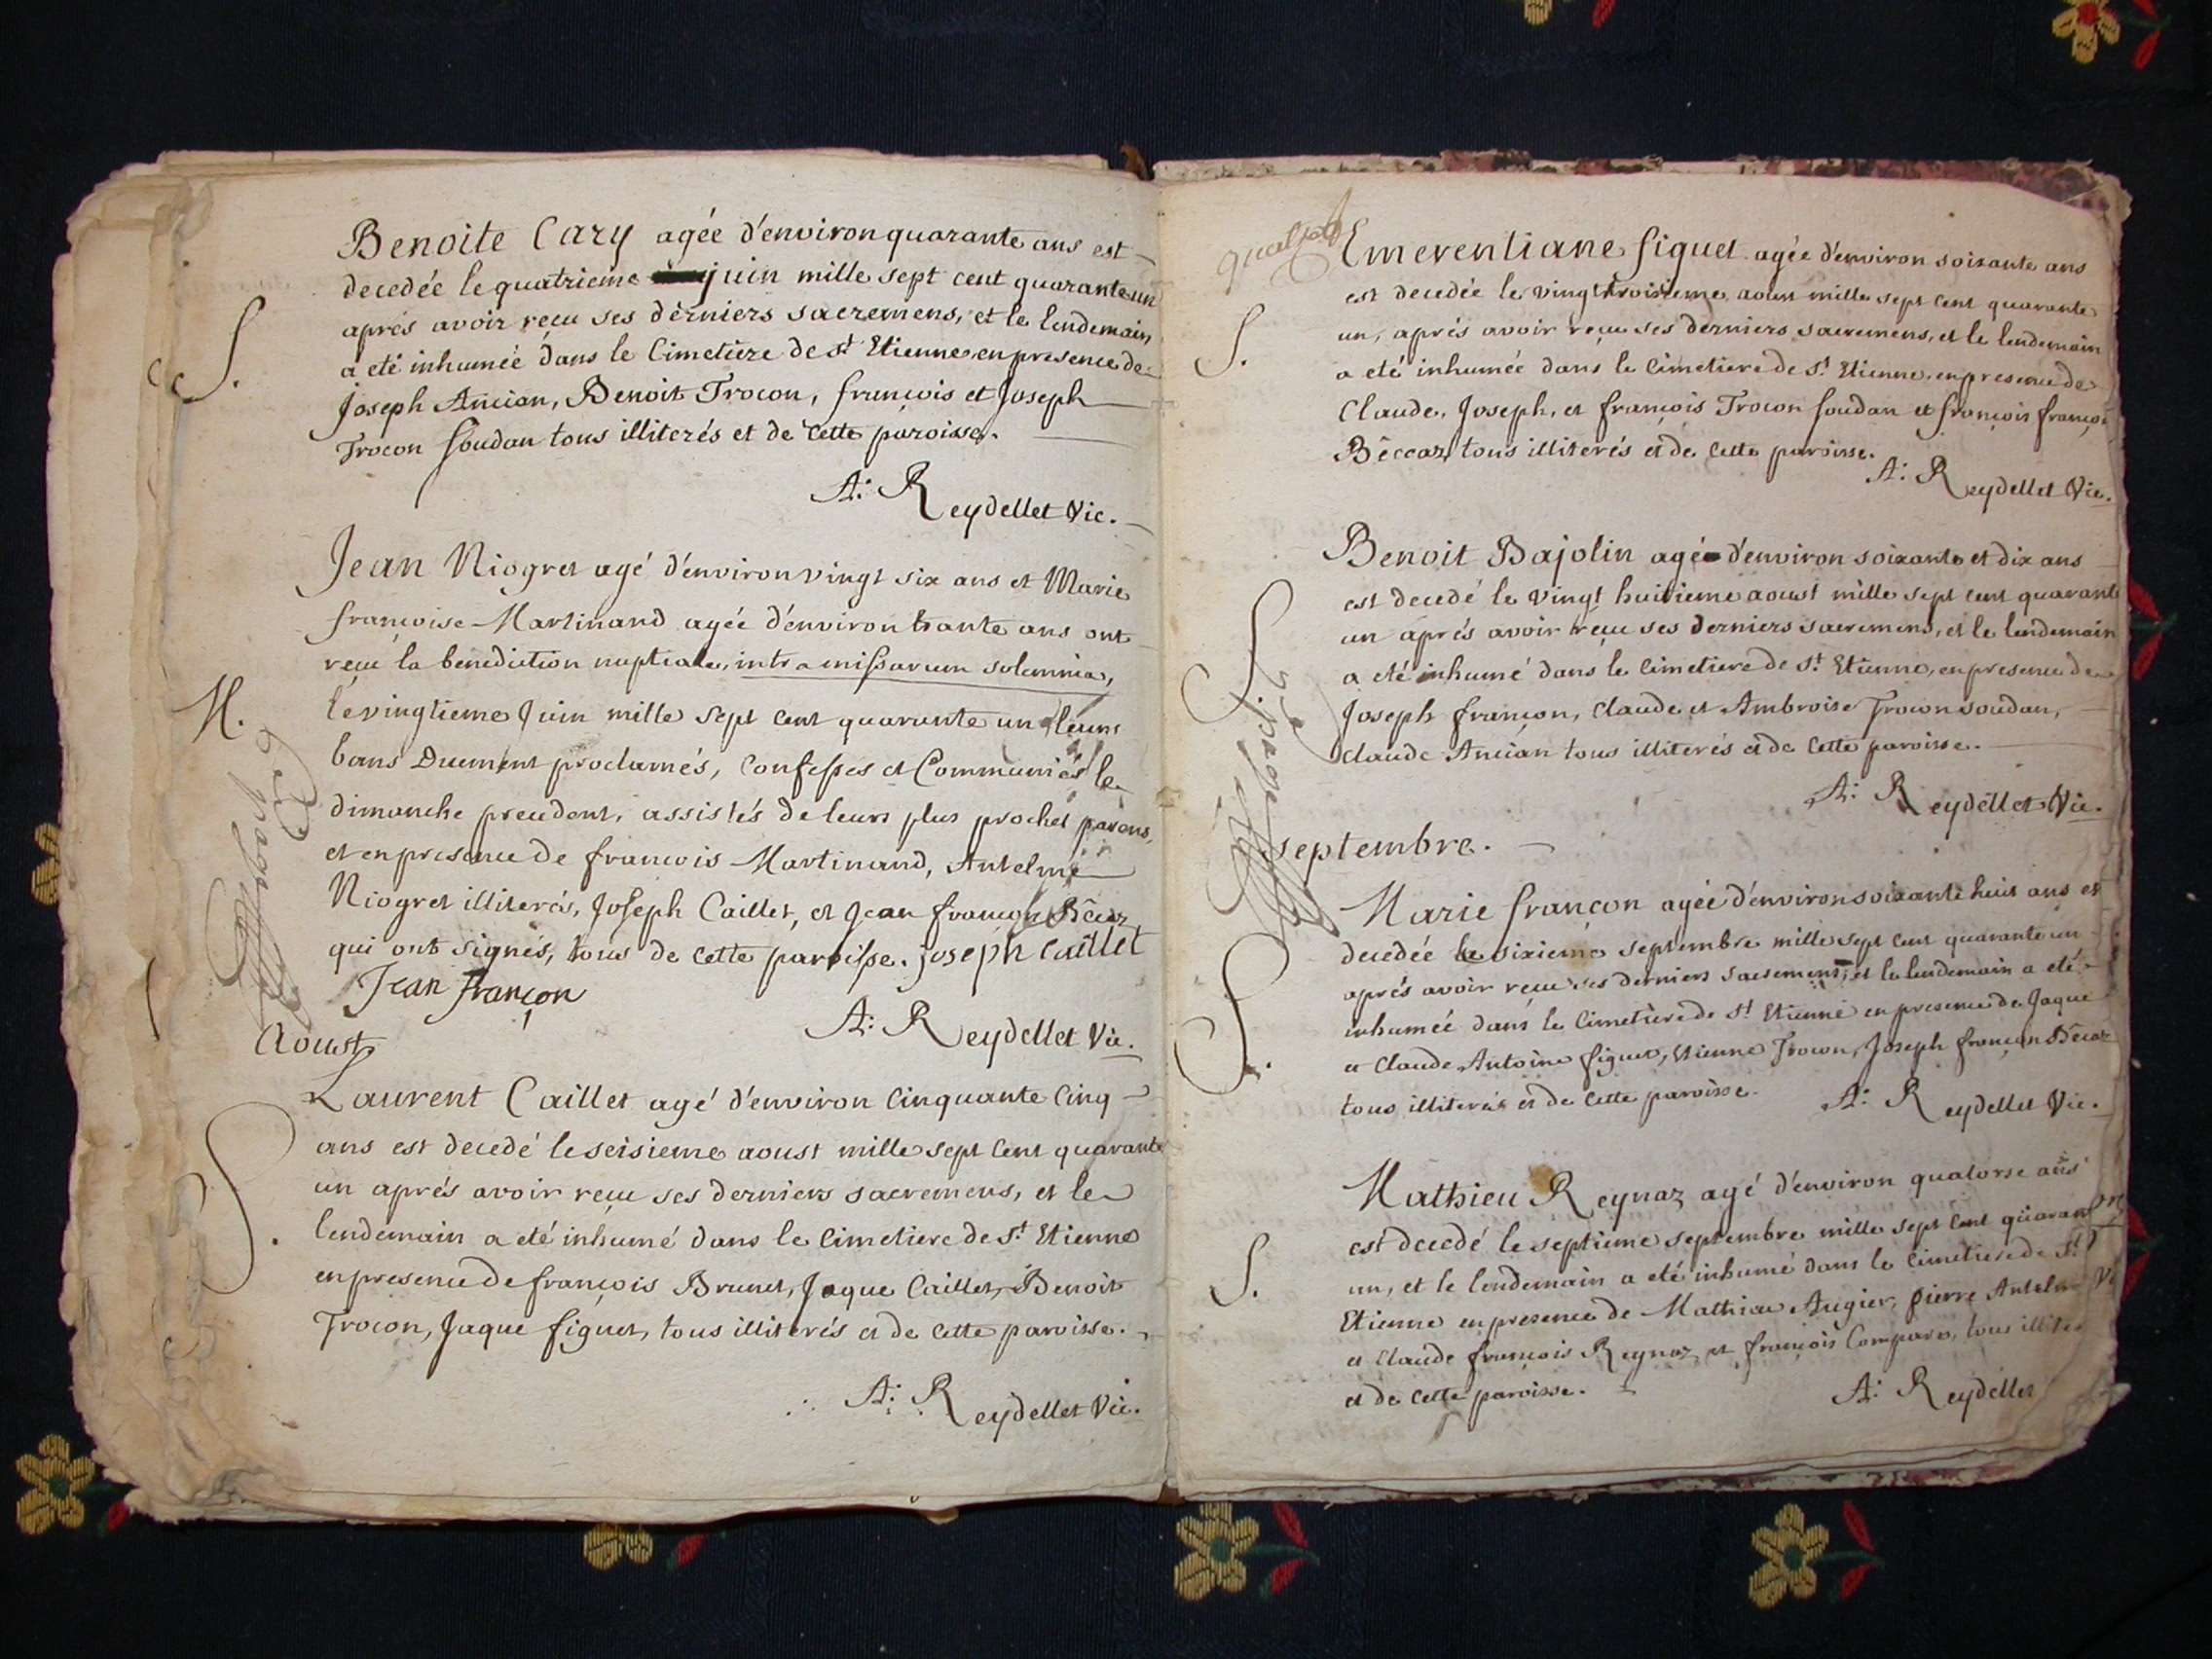 Benoite Cary agée d'environ quarante ans est
decedée le quatrieme juin mille sept cent quarante un
aprés avoir reçu ses derniers sacremens, et le lendemain
a eté inhumée dans le Cimetiere de st Etienne en presence de
Joseph Ancian, Benoit Trocon, françois et Joseph
Trocon soudan tous illiterés et de cette paroisse.
S.
A: Reydellet Vic.
Jean Niogret agé d'environ vingt six ans et Marie
françoise Martinand agée d'environ trante ans ont
reçu la benediction nuptiale, intra missarum solemnia,
M.
le vingtieme Juin mille sept cent quarante un leurs
bans Duement proclamés, Confesses et Communiés le
dimanche precedent, assistés de leurs plus proches parens,
et en presence de francois Martinand, Antelme
Niogret illiterés, Joseph Caillet, et Jean françon Béccaz
qui ont signés, tous de cette paroisse. joseph caillet
Jean françon
A: Reydellet Vic.
Aoust
Laurent Caillet agé d'environ Cinquante Cinq
ans est decedé le seisieme aoust mille sept cent quarante
un aprés avoir reçu ses derniers sacremens, et le
S.
lendemain a eté inhumé dans le Cimetiere de st Etienne
en presence de françois Brunet, Jaque Caillet, Benoit
Trocon, Jaque figuet, tous illiterés et de cette paroisse.
A: Reydellet Vic.
Emerentiane figuet agée d'environ soixante ans
est decedée le vingt troisieme aoust mille sept cent quarante
S.
un, aprés avoir reçu ses derniers sacremens, et le lendemain
a eté inhumée dans le Cimetiere de st Etienne, en presence de
Claude, Joseph, et françois Trocon soudan et françois françon
Béccaz, tous illiterés et de cette paroisse.
A: Reydellet Vic.
Benoit Bajolin agé d'environ soixante et dix ans
est decedé le vingt huitieme aoust mille sept cent quarante
un aprés avoir reçu ses derniers sacremens, et le lendemain
S.
a eté inhumé dans le Cimetiere de st Etienne, en presence de
Joseph françon, Claude et Ambroise Trocon soudan,
Claude Ancian tous illiterés et de cette paroisse.
A: Reydellet Vic.
septembre.
Marie françon agée d'environ soixante huit ans est
decedée le sixieme septembre mille sept cent quarante un
aprés avoir reçu ses derniers sacremens, et le lendemain a eté
inhumée dans le Cimetiere de st Etienne en presence de Jaque
S.
et Claude Antoine figuet, Etienne Trocon, Joseph françon Béccaz
tous illiterés et de cette paroisse.
A: Reydellet Vic.
Mathieu Reynaz agé d'environ quatorse ans
est decedé le septieme septembre mille sept cent quarante
S.
un, et le lendemain a eté inhumé dans le Cimetiere de st
Etienne en presence de Mathieu Augier, pierre Antelme
et Claude françois Reynaz, et françois Compare, tous illiterés
et de cette paroisse.
A: Reydellet